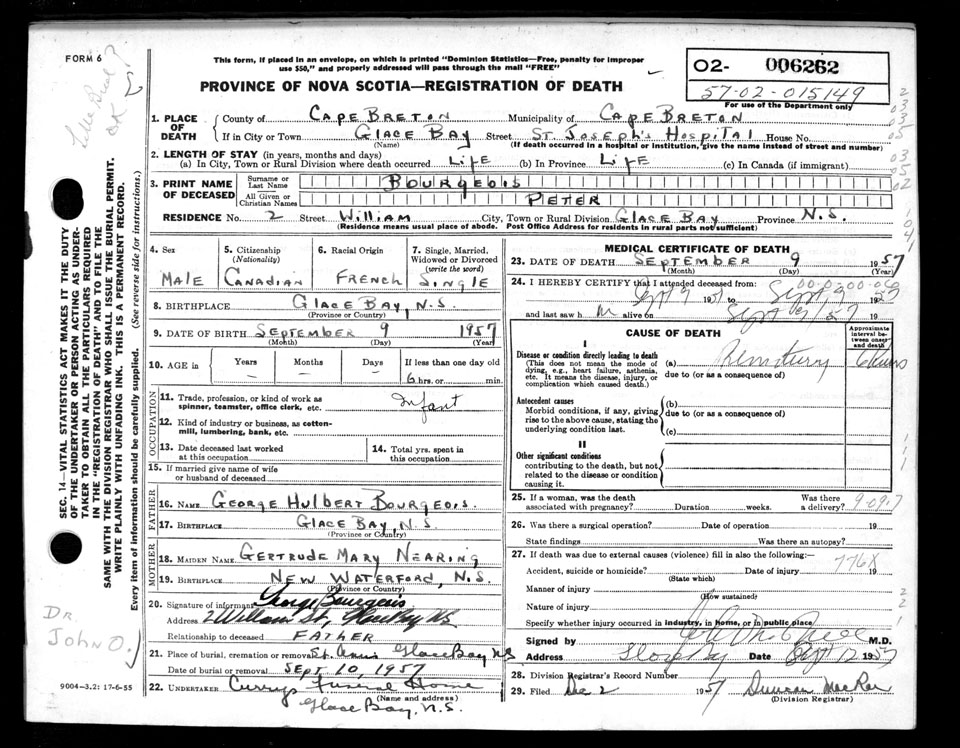 FORM 6
This form, if placed in an envelope, on which is printed "Dominion Statistics—Free, penalty for improper
use $50," and properly addressed will pass through the mail "FREE"
PROVINCE OF NOVA SCOTIA—REGISTRATION OF DEATH
O2- 006262
57-02-015149
For use of the Department only
SEC. 14—VITAL STATISTICS ACT MAKES IT THE DUTY
OF THE UNDERTAKER OR PERSON ACTING AS UNDER-
TAKER TO OBTAIN ALL THE PARTICULARS REQUIRED
IN THE "REGISTRATION OF DEATH" AND TO FILE THE
SAME WITH THE DIVISION REGISTRAR WHO SHALL ISSUE THE BURIAL PERMIT.
WRITE PLAINLY WITH UNFADING INK. THIS IS A PERMANENT RECORD.
Every item of information should be carefully supplied. (See reverse side for instructions.)
DR.
JOHN O.
9004-3.2: 17-6-55
1. PLACE OF DEATH County of CAPE BRETON Municipality of CAPE BRETON
If in City or Town GLACE BAY Street ST. JOSEPH'S HOSPITAL House No.
(Name) (If death occurred in a hospital or institution, give the name instead of street and number)
2. LENGTH OF STAY (in years, months and days)
(a) In City, Town or Rural Division where death occurred LIFE (b) In Province LIFE (c) In Canada (if immigrant)
3. PRINT NAME OF DECEASED Surname or Last Name BOURGEOIS
All Given or Christian Names PETER
RESIDENCE No. 2 Street WILLIAM City, Town or Rural Division GLACE BAY Province N.S.
(Residence means usual place of abode. Post Office Address for residents in rural parts not sufficient)
4. Sex 5. Citizenship (Nationality) 6. Racial Origin 7. Single, Married, Widowed or Divorced (write the word)
MALE CANADIAN FRENCH SINGLE
8. BIRTHPLACE GLACE BAY, N.S.
(Province or Country)
9. DATE OF BIRTH SEPTEMBER 9 1957
(Month) (Day) (Year)
10. AGE in Years Months Days If less than one day old
6 hrs. or min.
OCCUPATION
11. Trade, profession, or kind of work as
spinner, teamster, office clerk, etc. Infant
12. Kind of industry or business, as cotton-
mill, lumbering, bank, etc.
13. Date deceased last worked
at this occupation
14. Total yrs. spent in
this occupation
15. If married give name of wife
or husband of deceased
FATHER
16. NAME GEORGE HULBERT BOURGEOIS.
17. BIRTHPLACE GLACE BAY, N.S.
(Province or Country)
MOTHER
18. MAIDEN NAME GERTRUDE MARY NEARING
19. BIRTHPLACE NEW WATERFORD, N.S.
(Province or Country)
20. Signature of informant George Bourgeois
Address 2 William St, Glace Bay NS
Relationship to deceased FATHER
21. Place of burial, cremation or removal St. Anns Glace Bay NS
Date of burial or removal SEPT 10, 1957
22. UNDERTAKER Currys Funeral Home
(Name and address)
Glace Bay, N.S.
MEDICAL CERTIFICATE OF DEATH
23. DATE OF DEATH SEPTEMBER 9 1957
(Month) (Day) (Year)
24. I HEREBY CERTIFY that I attended deceased from:
Sept 9 1957 to Sept 9 1957
and last saw h m alive on Sept 9/57 19
CAUSE OF DEATH
Approximate interval between onset and death
I
Disease or condition directly leading to death
(This does not mean the mode of
dying, e.g., heart failure, asthenia,
etc. It means the disease, injury, or
complication which caused death.)
(a)
due to (or as a consequence of)
Antecedent causes
Morbid conditions, if any, giving
rise to the above cause, stating the
underlying condition last.
(b)
due to (or as a consequence of)
(c)
II
Other significant conditions
contributing to the death, but not
related to the disease or condition
causing it.
25. If a woman, was the death
associated with pregnancy? Duration weeks. Was there a delivery?
26. Was there a surgical operation? Date of operation 19
State findings Was there an autopsy?
27. If death was due to external causes (violence) fill in also the following:—
Accident, suicide or homicide? Date of injury 19
776X
(State which)
Manner of injury
(How sustained)
Nature of injury
Specify whether injury occurred in industry, in home, or in public place
Signed by M.D.
Address Glace Bay Date Sept 12 1957
28. Division Registrar's Record Number
29. Filed Dec 2 1957 Duncan MacRae
(Division Registrar)